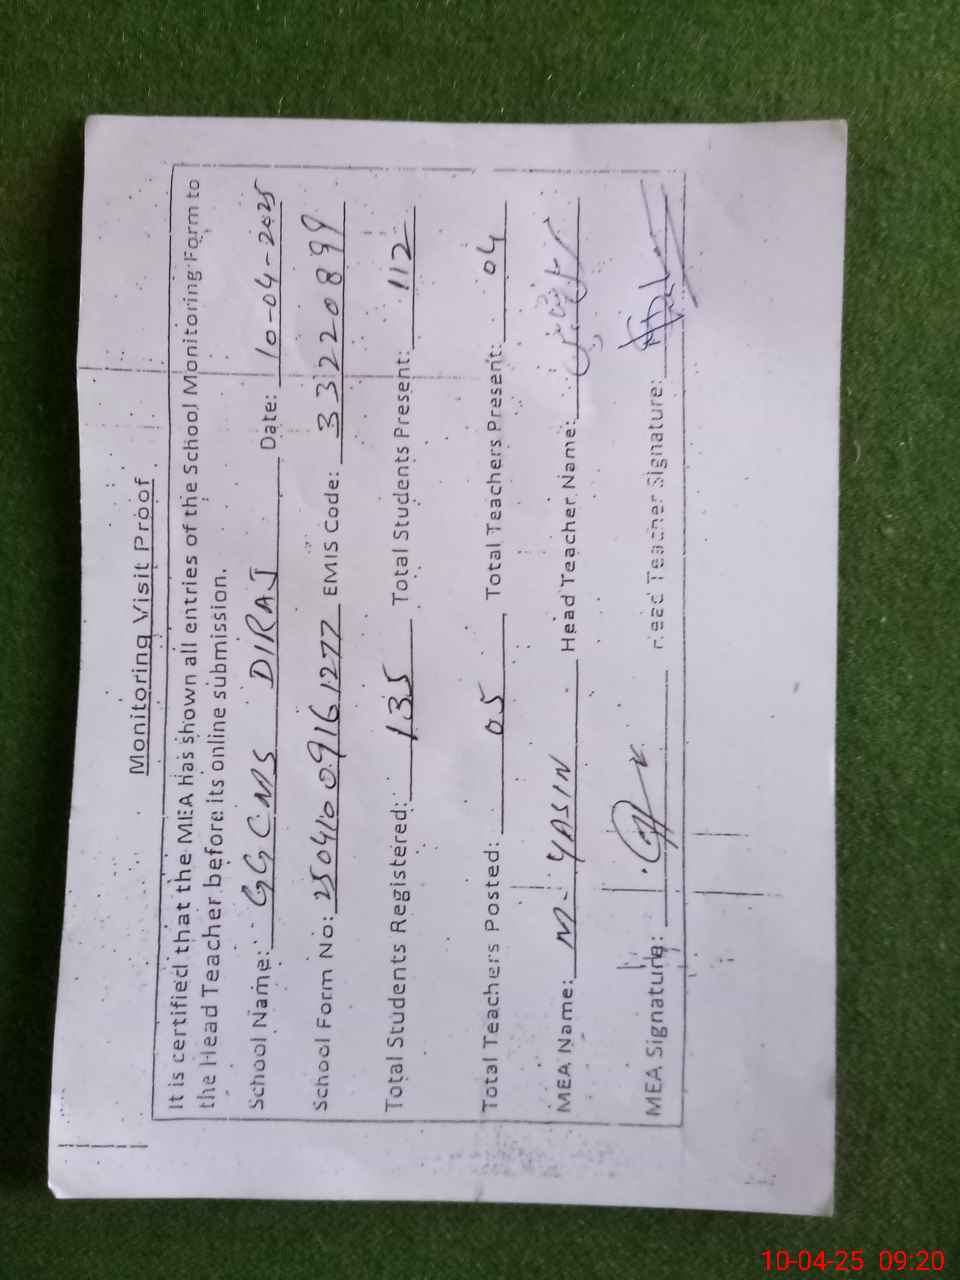 Monitoring Visit Proof
It is certified that the MEA has shown all entries of the School Monitoring Form to
the Head Teacher before its online submission.
School Name: GGCMS DIRAJ Date: 10-04-2025
School Form No: 25041009161277 EMIS Code: 33220899
Total Students Registered: 135 Total Students Present: 112
Total Teachers Posted: 05 Total Teachers Present: 04
MEA Name: M. YASIN Head Teacher Name:
MEA Signature: Head Teacher Signature:
10-04-25 09:20